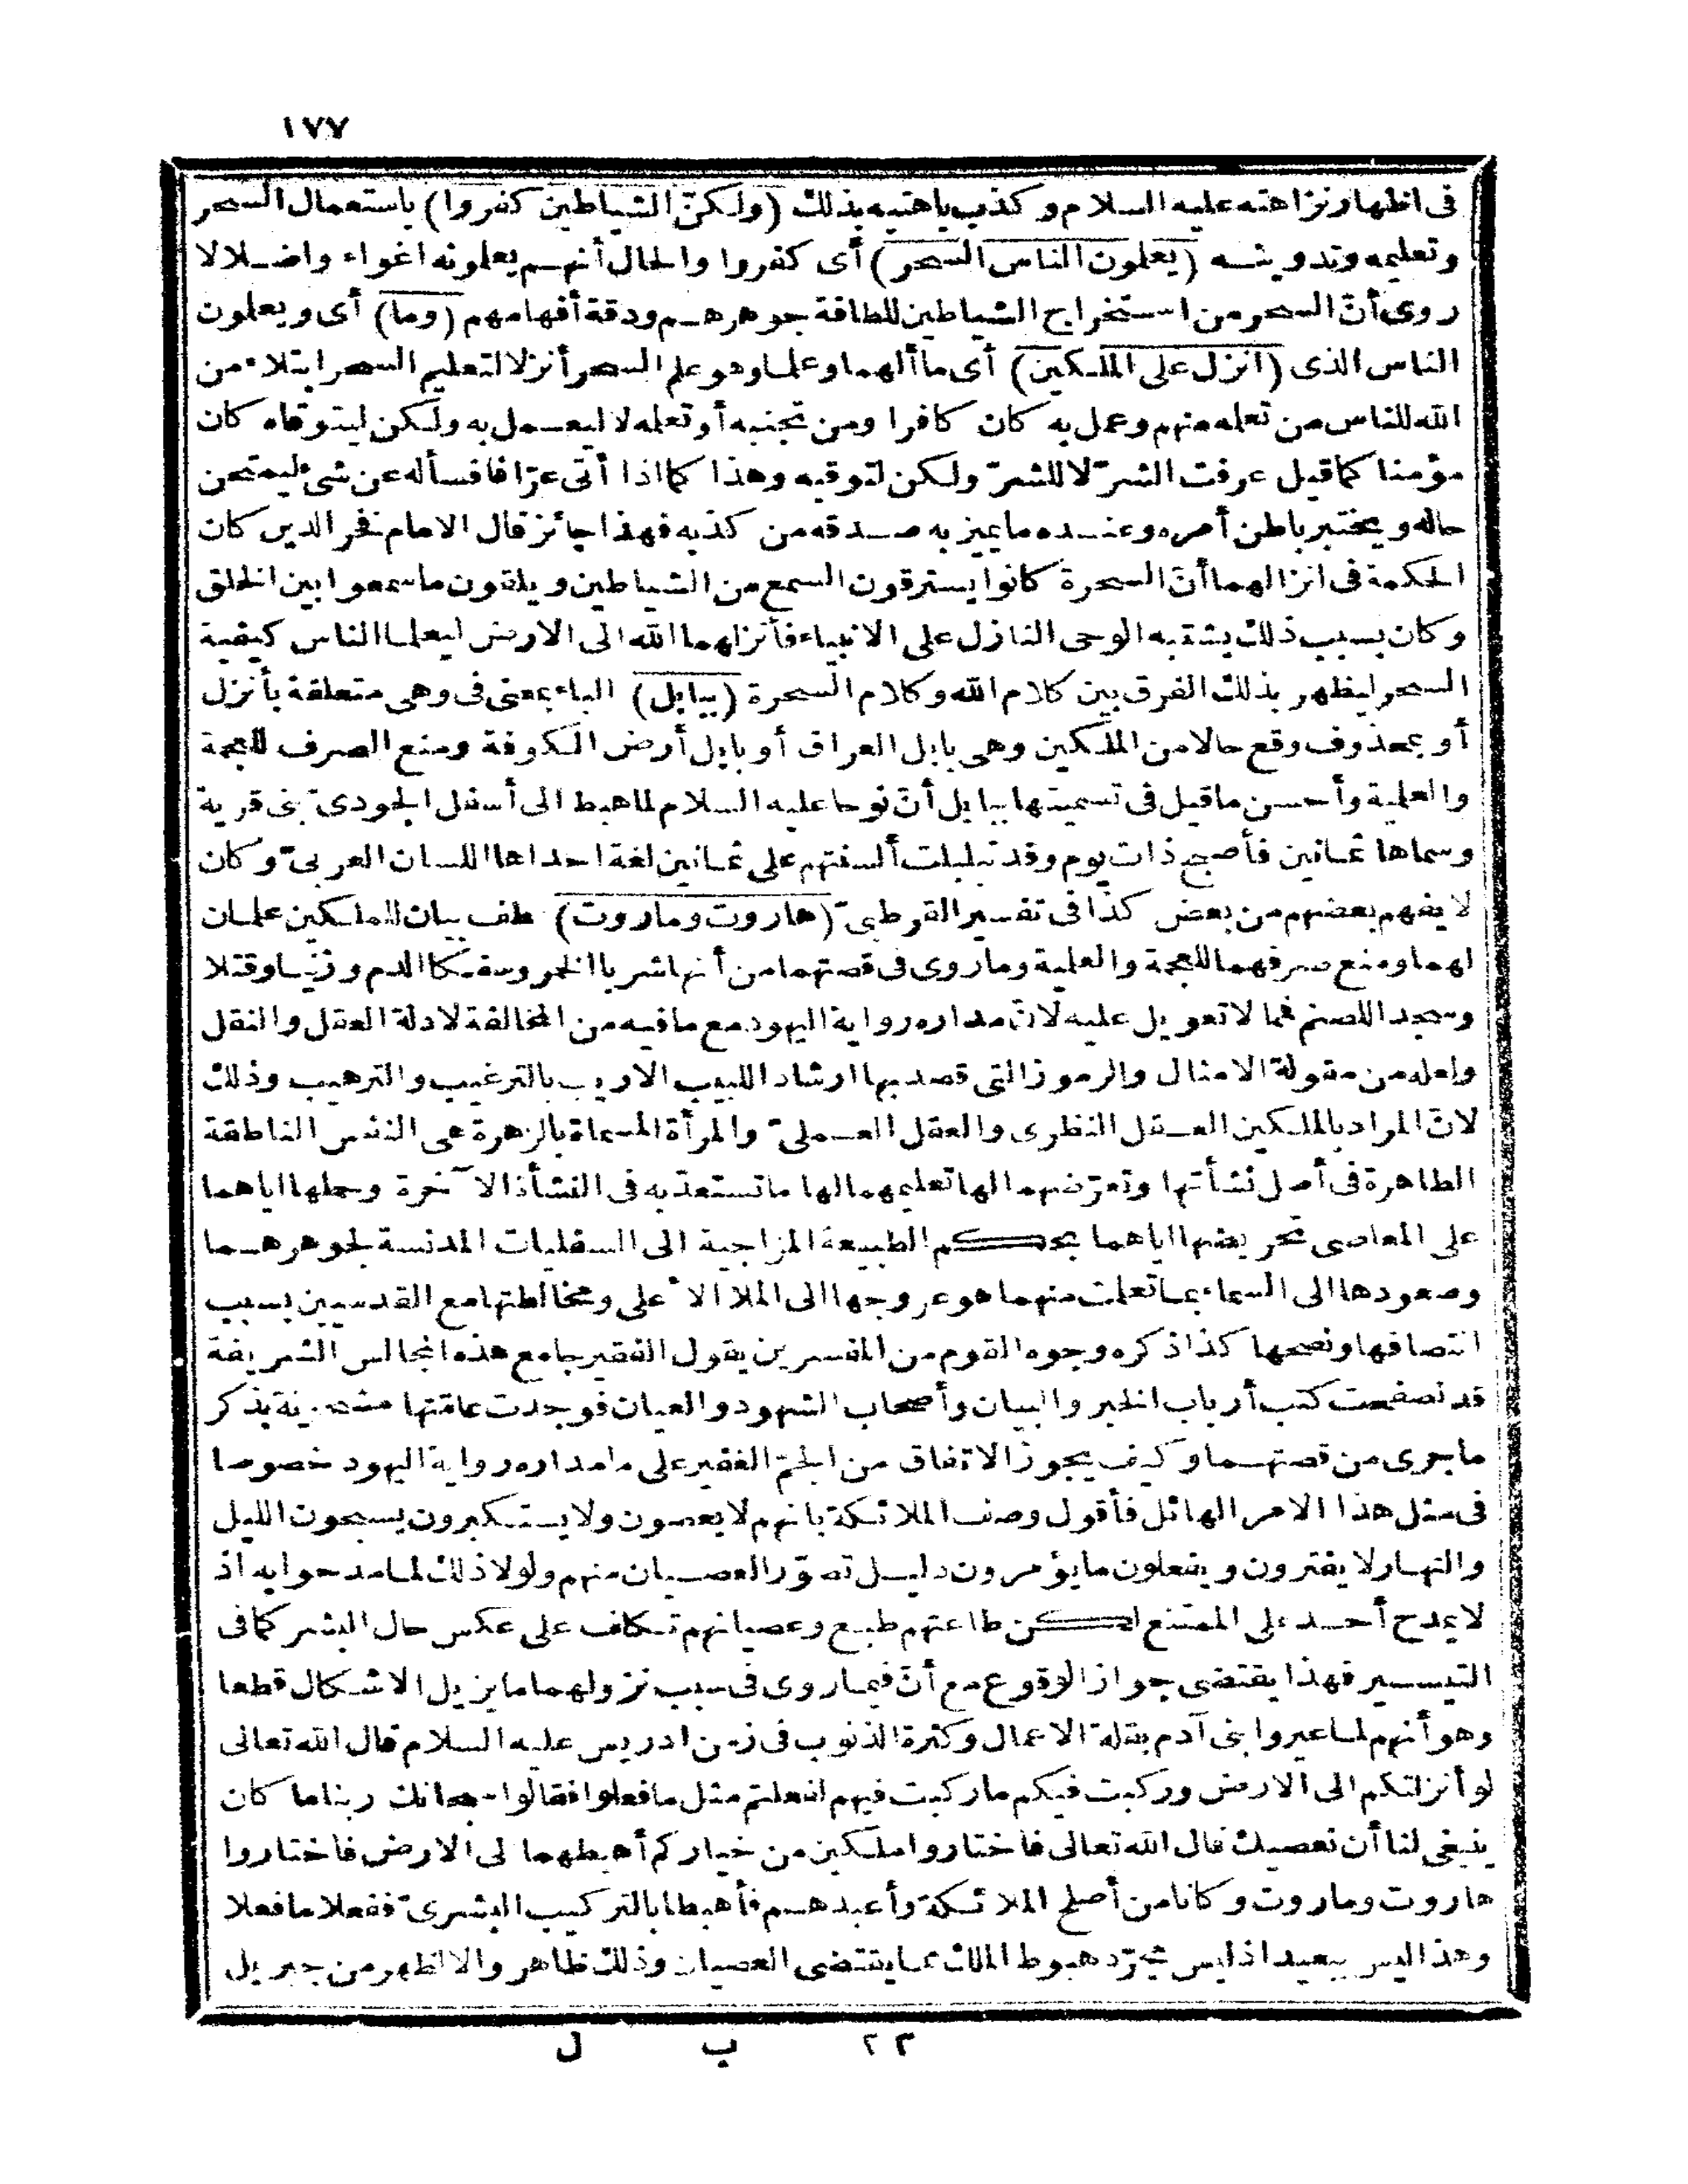 ١٧٧
فى اظهار نزاهته عليه السلام وكذب باهتيه بذلك (ولكنّ الشياطين كفروا) باستعمال السحر
وتعليمه وتدوينه (يعلمون الناس السحر) أى كفروا والحال أنهم يعلمونه اغواء واضلالا
روى أنّ السحر من استخراج الشياطين للطافة جوهرهم ودقة أفهامهم (وما) أى ويعلمون
الناس الذى (انزل على الملكين) أى ما ألهما وعلما وهو علم السحر أنزلا لتعليم السحر ابتلاء من
الله للناس من تعلمه منهم وعمل به كان كافرا ومن تجنبه أو تعلمه لا ليعمل به ولكن ليتوقاه كان
مؤمنا كما قيل عرفت الشرّ لا للشرّ ولكن لتوقيه وهذا كما اذا أتى عرّافا فسأله عن شئ ليمتحن
حاله ويختبر باطن أمره وعنده ما يميز به صدقه من كذبه فهذا جائز قال الامام فخر الدين كان
الحكمة فى انزالهما أنّ السحرة كانوا يسترقون السمع من الشياطين ويلقون ما سمعوا بين الخلق
وكان بسبب ذلك يشتبه الوحى النازل على الانبياء فأنزلهما الله الى الارض ليعلما الناس كيفية
السحر ليظهر بذلك الفرق بين كلام الله وكلام السحرة (ببابل) الباء بمعنى فى وهى متعلقة بأنزل
أو بمحذوف وقع حالا من الملكين وهى بابل العراق أو بابل أرض الكوفة ومنع الصرف للعجمة
والعلمية وأحسن ما قيل فى تسميتها ببابل أنّ نوحا عليه السلام لما هبط الى أسفل الجودىّ بنى قرية
وسماها ثمانين فأصبح ذات يوم وقد تبلبلت ألسنتهم على ثمانين لغة احداها اللسان العربىّ وكان
لا يفهم بعضهم من بعض كذا فى تفسير القرطبىّ (هاروت وماروت) عطف بيان للملكين علمان
لهما ومنع صرفهما للعجمة والعلمية وما روى فى قصتهما من أنهما شربا الخمر وسفكا الدم وزنيا وقتلا
وسجدا للصنم فمما لا تعويل عليه لانّ مداره رواية اليهود مع ما فيه من المخالفة لادلة العقل والنقل
ولعله من مقولة الامثال والرموز التى قصد بها ارشاد اللبيب الاريب بالترغيب والترهيب وذلك
لانّ المراد بالملكين العقل النظرى والعقل العملىّ والمرأة المسماة بالزهرة هى النفس الناطقة
الطاهرة فى أصل نشأتها وتعرّضهما لها تعليمهما لها ما تستعد به فى النشأة الآخرة وحملها اياهما
على المعاصى تحريضها اياهما بحكم الطبيعة المزاجية الى السفليات المدنسة لجوهرهما
وصعودها الى السماء بما تعلمت منهما هو عروجها الى الملا الاعلى ومخالطتها مع القدسيين بسبب
انتصافها ونصحها كذا ذكره وجوه القوم من المفسرين يقول الفقير جامع هذه المجالس الشريفة
قد تصفحت كتب أرباب الخبر والبيان وأصحاب الشهود والعيان فوجدت عامّتها مشحونة بذكر
ما جرى من قصتهما وكيف يجوز الاتفاق من الجمّ الغفير على ما مداره رواية اليهود خصوصا
فى مثل هذا الامر الهائل فأقول وصف الملائكة بانهم لا يعصون ولا يستكبرون يسبحون الليل
والنهار لا يفترون ويفعلون ما يؤمرون دليل تصوّر العصيان منهم ولولا ذلك لما مدحوا به اذ
لا يمدح أحد على الممتنع لكن طاعتهم طبع وعصيانهم تكلف على عكس حال البشر كما فى
التيسير فهذا يقتضى جواز الوقوع مع أنّ فيما روى فى سبب نزولهما ما يزيل الاشكال قطعا
وهو أنهم لما عيروا بنى آدم بقلة الاعمال وكثرة الذنوب فى زمن ادريس عليه السلام قال الله تعالى
لو أنزلتكم الى الارض وركبت فيكم ما ركبت فيهم لفعلتم مثل ما فعلوا فقالوا سبحانك ربنا ما كان
ينبغى لنا أن نعصيك قال الله تعالى فاختاروا ملكين من خياركم أهبطهما الى الارض فاختاروا
هاروت وماروت وكانا من أصلح الملائكة وأعبدهم فأهبطا بالتركيب البشرىّ ففعلا ما فعلا
وهذا ليس ببعيد اذ ليس مجرّد هبوط الملك مما يقتضى العصيان وذلك ظاهر والا لظهر من جبريل
٢٣ ب ل